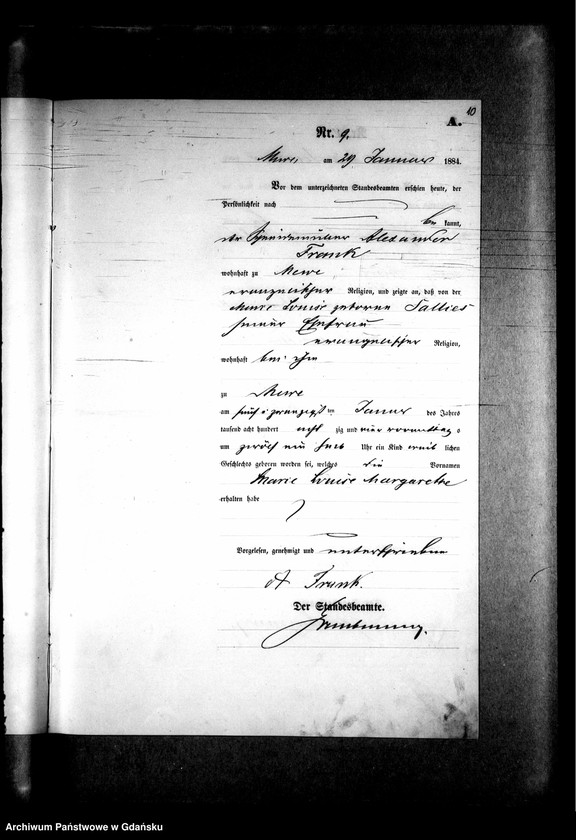 10
A.
Nr. 9.
Mewe, am 29 Januar 1884.
Vor dem unterzeichneten Standesbeamten erschien heute, der
Persönlichkeit nach
be kannt,
der Alexander
Frank
wohnhaft zu Mewe
evangelischer Religion, und zeigte an, daß von der
Marie Louise geborene Sallies
seiner Ehefrau
evangelischer Religion,
wohnhaft bei ihm
zu Mewe
am fünf u zwanzigsten Januar des Jahres
tausend acht hundert acht zig und vier vormittags
um zwölf ein halb Uhr ein Kind weib lichen
Geschlechts geboren worden sei, welches die Vornamen
Marie Louise Margarethe
erhalten habe
Vorgelesen, genehmigt und unterschrieben
A Frank.
Der Standesbeamte.
Archiwum Państwowe w Gdańsku